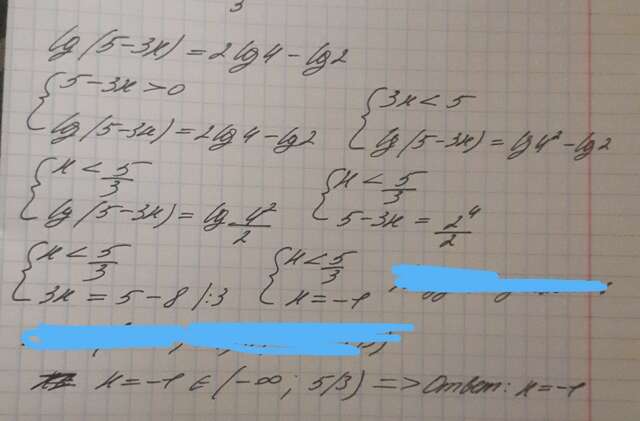 lg(5-3x) = 2lg4 - lg2
{ 5-3x > 0
lg(5-3x) = 2lg4 - lg2
{ 3x < 5
lg(5-3x) = lg4² - lg2
{ x < 5/3
lg(5-3x) = lg 4²/2
{ x < 5/3
5-3x = 2⁴/2
{ x < 5/3
3x = 5-8 |:3
{ x < 5/3
x = -1
x = -1 ∈ (-∞; 5/3) => Ответ: x = -1